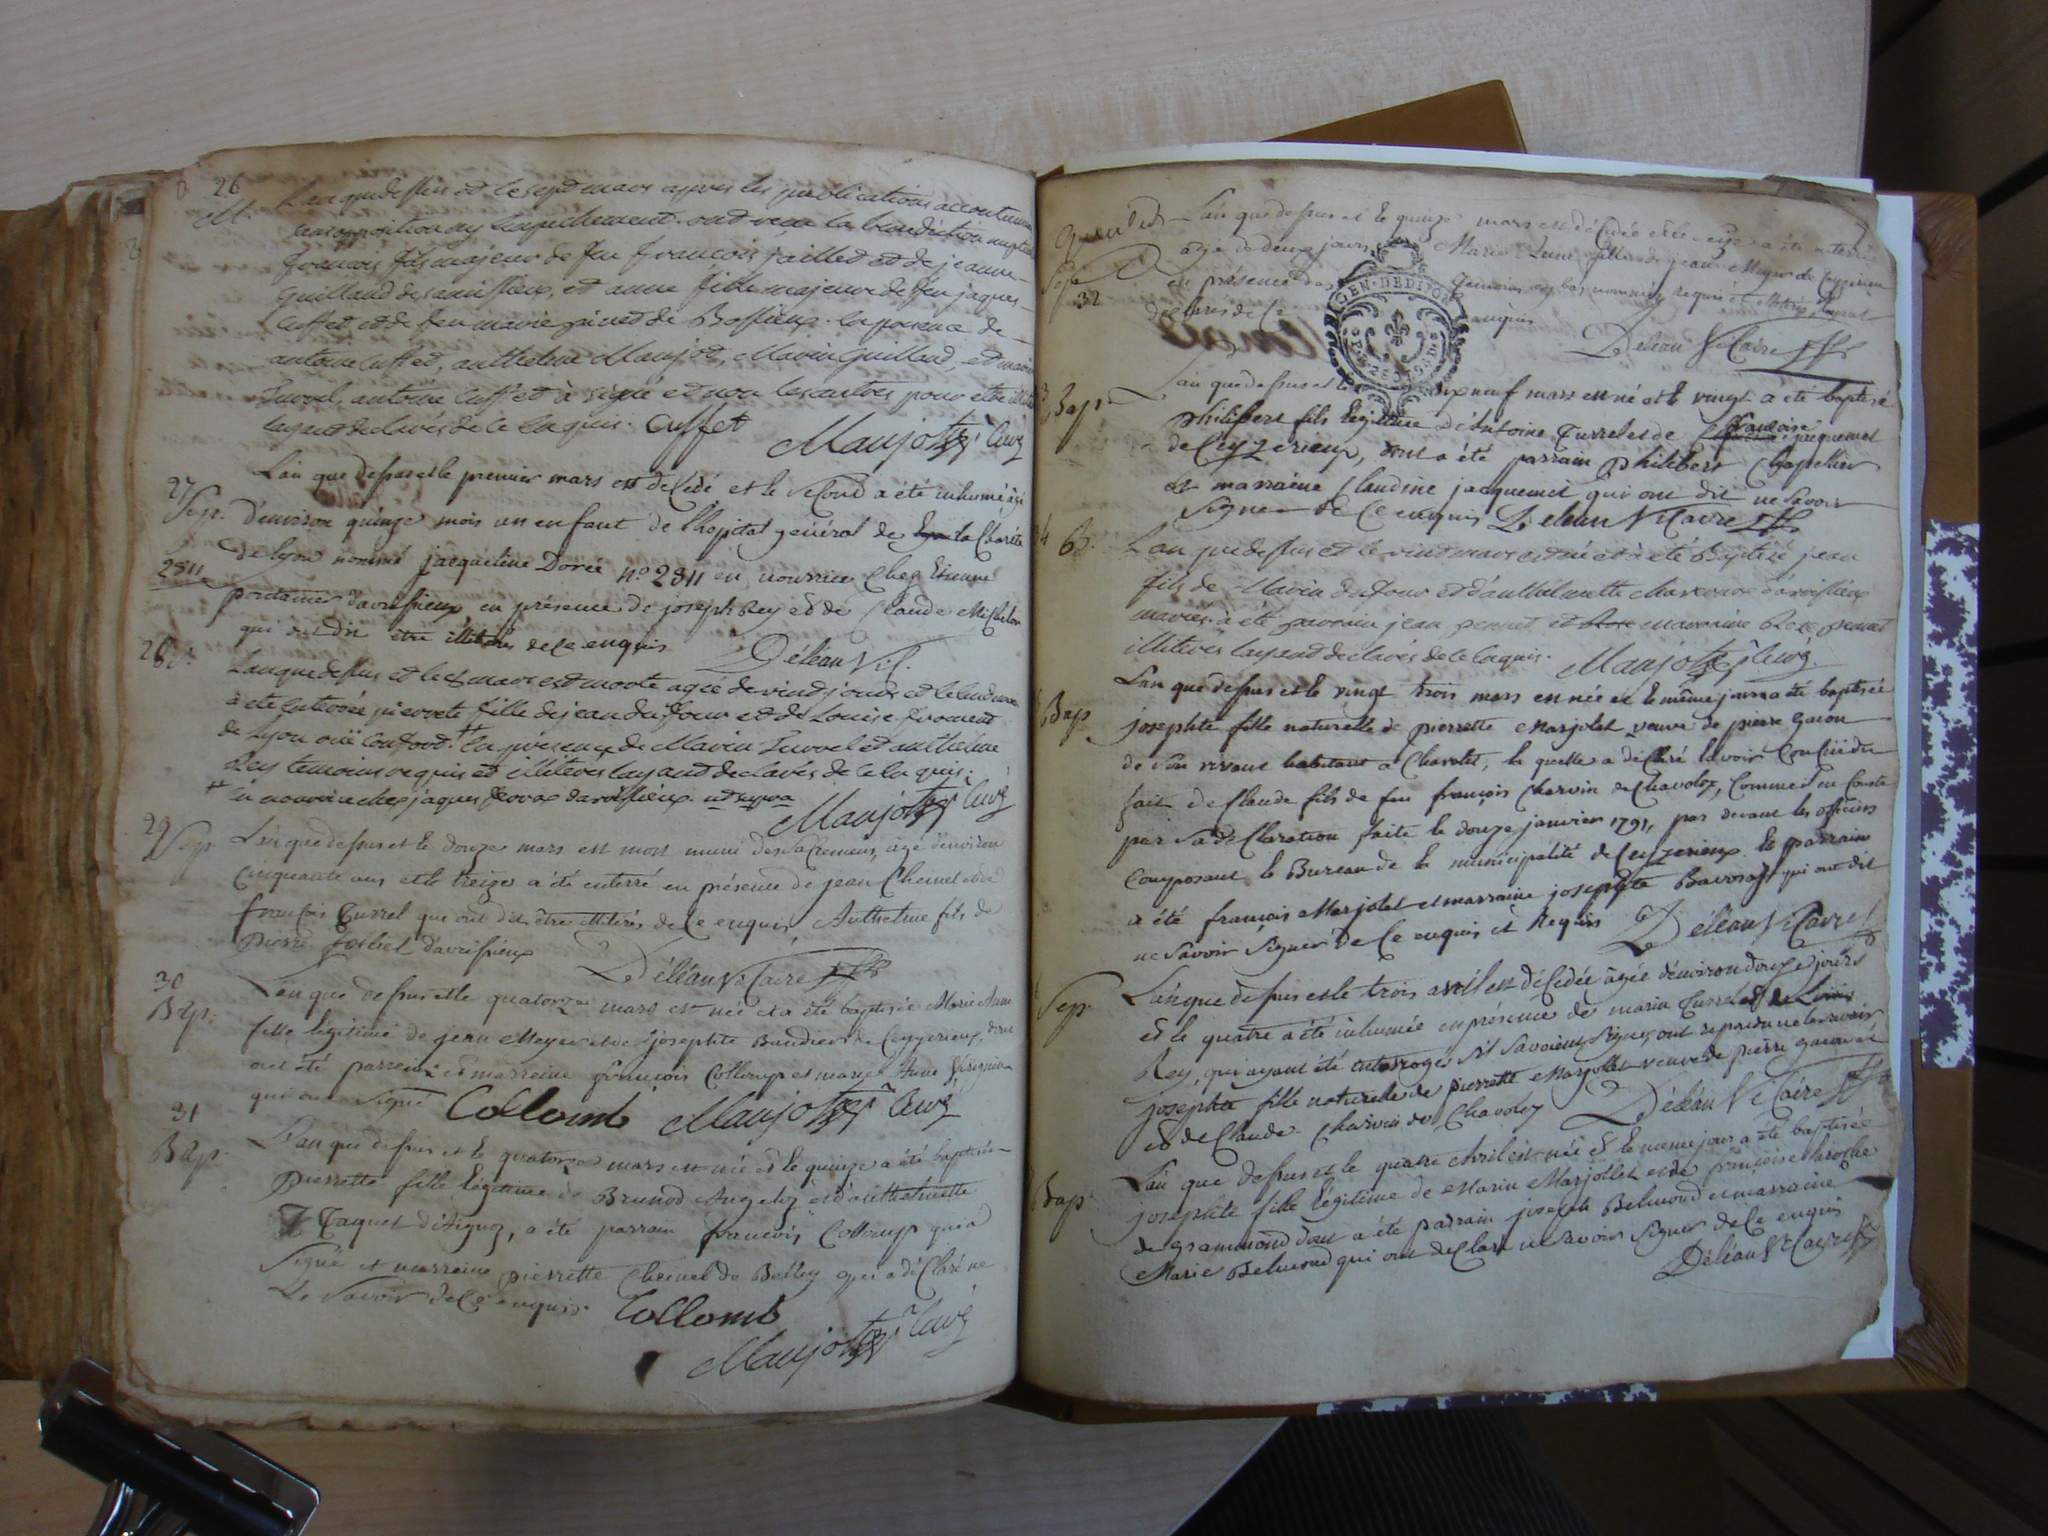 26
M.
L'an que dessus et le sept mars apres les publications accoutumées
sans opposition ny empechement ont recu la benediction nuptiale
francois fils majeur de feu francois jaillet et de jeanne
guilland et anne fille majeure de feu jaques
Cuffet et de feu marie de Bossieux. En presence de
antoine Cuffet, anthelme Maujot, Marin Guilland, et marin
Turrel, antoine Cuffet à signé et non les autres pour etre
layant declarés de ce enquis. Cuffet
Maujot Curé
27
Sep.
L'an que dessus et le premier mars est decedé et le second a été inhumé agé
d'environ quinze mois un enfant de l'hopital général de la Charité
de Lyon nommé jacqueline Dorée n° 2811 en nourrice chez Etienne
2811
d'avrissieux en présence de joseph Rey et de Claude Michelon
qui ont dit être illiterés de ce enquis Déléan Vic.
28
L'an que dessus et le mars est morte agée de vind jours et le lendemain
à ete enterrée pierrete fille de jean dufour et de Louise froment
de Lyon rüe Confort.+ En presence de Marin Turrel et anthelme
Rey temoins requis et illiterés layant declarés de ce enquis.
+ en nourrice chez jaques davrissieux. ut supra
Maujot Curé
29
Sep
L'an que dessus et le douze mars est mort muni des sacremens, agé d'environ
cinquante ans et le treize a été enterré en présence de jean Cheinel et de
francois Turrel qui ont dit être illiterés de ce enquis, Anthelme fils de
pierre d'avrissieux
Déléan Vicaire
30
Bap.
L'an que dessus et le quatorze mars est née et a été baptisée Marie Anne
fille légitime de jean Meyer et de josephte Baudier de Ceyzerieux, dont
ont été parrein et marreine françois Colomp et marie Anne
qui ont signé Collomb Maujot Curé
31
Bap.
L'an que dessus et le quatorze mars est née et le quinze a été baptisée
pierrette fille légitime de Brunod Angeloz et d'anthelmette
Taquet d'Aignoz, a été parrain françois Collomp qui a
signé et marreine pierrette Cheinel de Belley qui a déclaré ne
Le savoir de ce enquis. Collomb
Maujot Curé
L'an que dessus et le quinze mars est décédée et le seize a été enterrée
agée de deux jours Marie Anne fille de jean Meyer de Ceyzerieu
Sep
32
en présence de
GEN. DE DIJON
enquis
Déléan Vicaire
Bap.
L'an que dessus et le dix neuf mars est né et le vingt a été baptisé
philibert fils légitime d'Antoine Turrel et de françoise jacquemet
de Ceyzerieux, dont a été parrain philibert Chapellier
et marraine Claudine jacquemet qui ont dit ne savoir
signer de ce enquis Déléan Vicaire
B.
L'an que dessus et le vint mars est né et à été Baptisé jean
fils de Marin Dufour et d'anthelmette d'avrissieux
mariés à été parrain jean pennet et marraine Roze pennet
illiterés layant declarés de ce enquis. Maujot Curé
Bap
L'an que dessus et le vingt trois mars est née et le même jour a été baptisée
josephte fille naturelle de pierrette Marjolet veuve de pierre Gacon
de son vivant habitant a Chavolet, la quelle a déclaré l'avoir
fait de Claude fils de feu françois Charvin de Chavoloz, comme il en conste
par sa déclaration faite le douze janvier 1791, par devant les officiers
composant le Bureau de la municipalité de Ceyzerieux. Le parrain
a été françois Marjolet et marraine josephte qui ont dit
ne savoir signer de ce enquis et Requis Déléan Vicaire
Sep.
L'an que dessus et le trois avril est décédée agée d'environ douze jours
et le quatre a été inhumée en présence de marin Turrel et de Louis
Rey, qui ayant été interrogés s'il savoient signer, ont repondu ne le savoir
josephte fille naturelle de pierrette Marjollet veuve de pierre Gacon et
et de Claude Charvin de Chavoloz Déléan Vicaire
Bap
L'an que dessus et le quatre Avril est née et le meme jour a été baptisée
josephte fille légitime de Marin Marjollet et de françoise Laroche
de grammond dont a été parrain joseph Belmond et marraine
Marie Belmond qui ont déclaré ne savoir signer de ce enquis
Déléan Vicaire